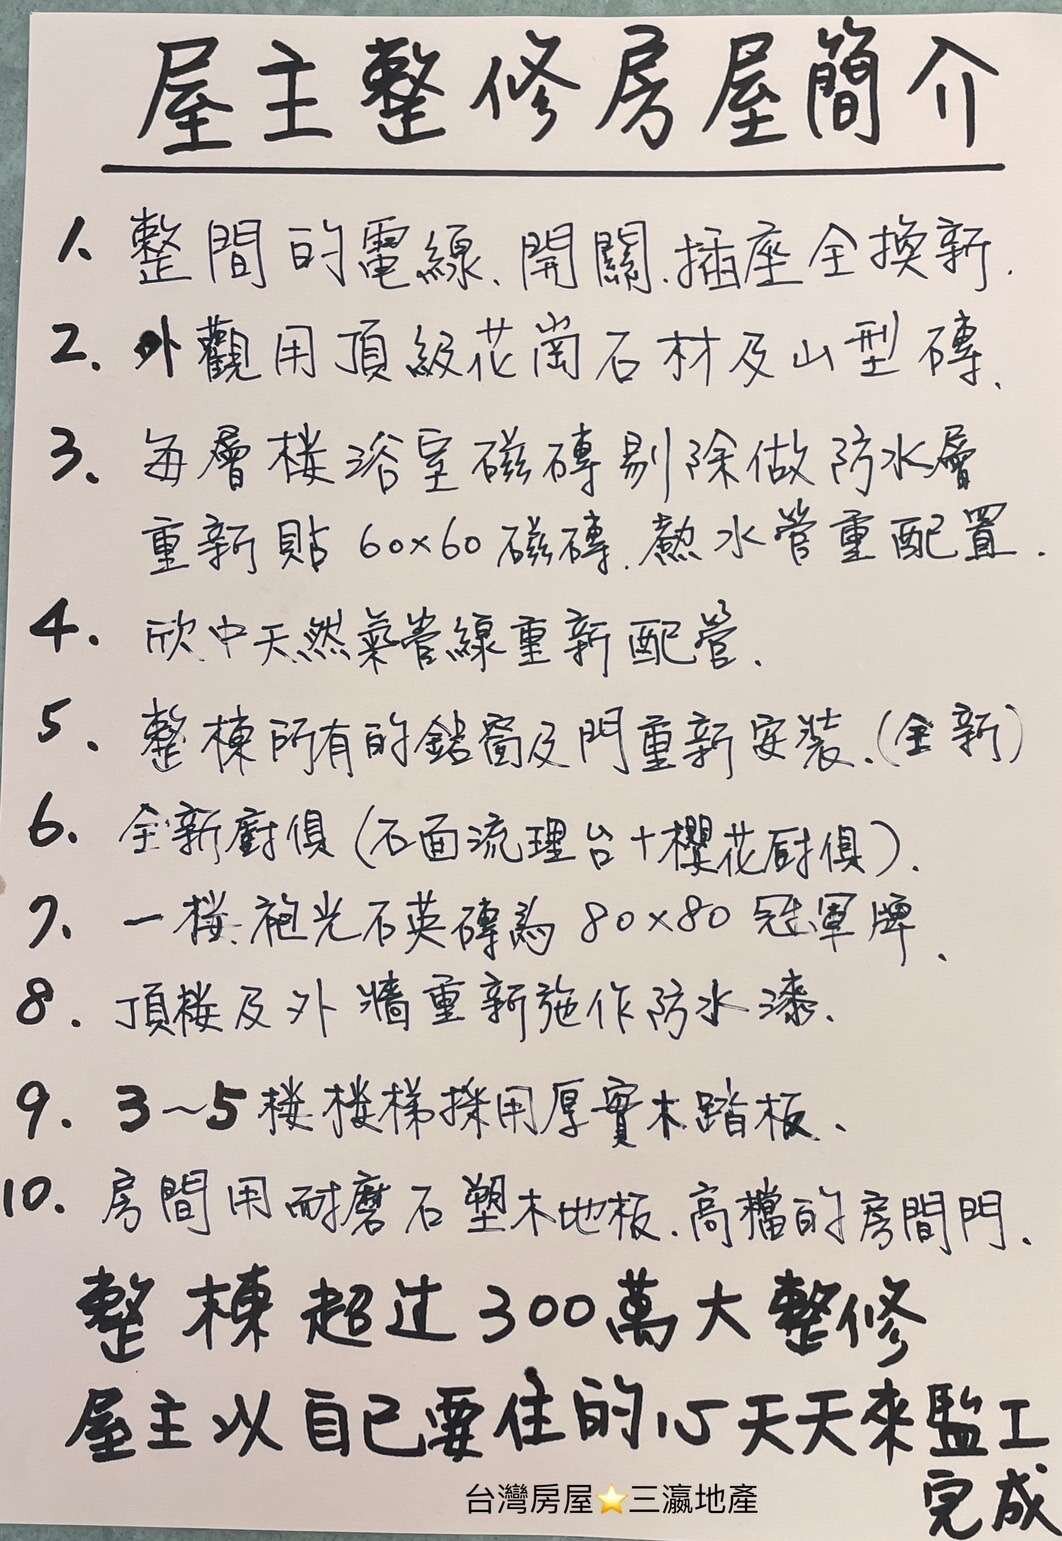 屋主整修房屋簡介
1. 整間的電線、開關.插座全換新.
2. 外觀用頂級花崗石材及山型磚、
3. 每層楼浴室磁磚剔除做防水層
重新貼60×60磁磚.熱水管重配置.
4. 欣中天然氣管線重新配管、
5. 整棟所有的鋁窗及門重新安裝.(全新)
6. 全新廚俱(石面流理台+櫻花厨俱).
7. 一楼:袍光石英磚為80×80冠軍牌、
8. 頂楼及外牆重新施作防水漆.
9. 3~5楼楼梯採用厚實木踏板、
10. 房間用耐磨石塑木地板.高檔的房間門、
整棟超过300萬大整修
屋主以自己要住的心天天來監工
完成
台灣房屋⭐三瀛地產